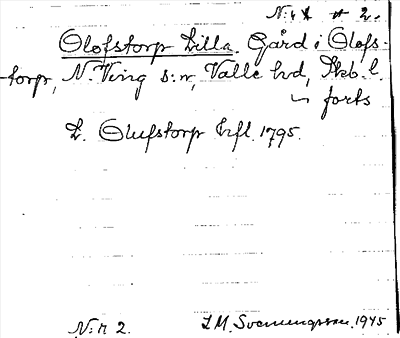 N:r 1 # 2.
Olofstorp Lilla. Gård i Olofs-
torp, N. Ving s:n, Valle hd, Skb. l.
forts
L. Olufstorp Erfl. 1795.
N:r 2. I. M. Svenungsson. 1945